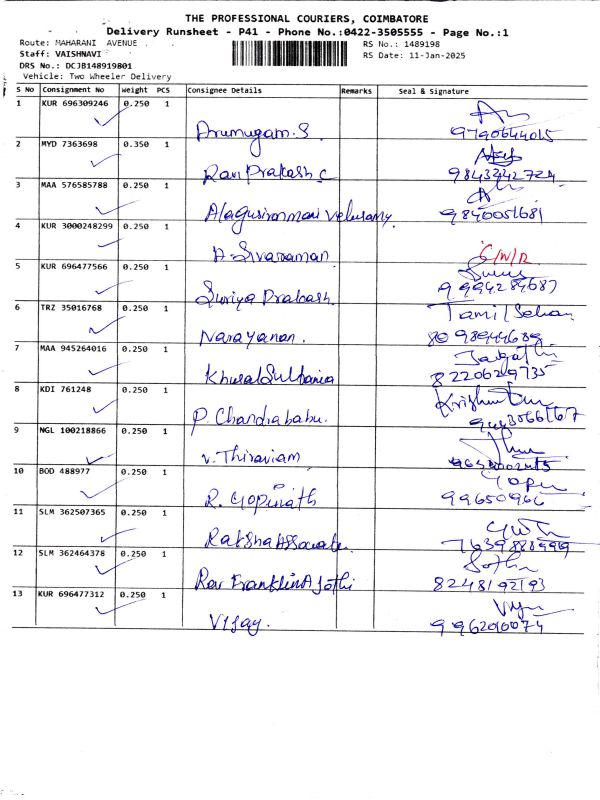 THE PROFESSIONAL COURIERS, COIMBATORE
Delivery Runsheet - P41 - Phone No.:0422-3505555 - Page No.:1
Route: MAHARANI AVENUE
RS No.: 1489198
Staff: VAISHNAVI
RS Date: 11-Jan-2025
DRS No.: DCJB148919801
Vehicle: Two Wheeler Delivery
S No Consignment No Weight PCS Consignee Details Remarks Seal & Signature
1 KUR 696309246 0.250 1
Arumugam.S 9790644015
2 MYD 7363698 0.350 1
Ravi Prakash C
3 MAA 576585788 0.250 1
9840051681
4 KUR 3000248299 0.250 1
A Sivaraman
5 KUR 696477566 0.250 1
Suriya Prakash 9994284687
6 TRZ 35016768 0.250 1 Tamil Selvan
Narayanan.
7 MAA 945264016 0.250 1
Khusal Sultania 8220629735
8 KDI 761248 0.250 1
P. Chandrababu.
9 NGL 100218866 0.250 1
V. Thiraviam
10 BOD 488977 0.250 1 Gopi
R. Gopinath
11 SLM 362507365 0.250 1
7639888999
12 SLM 362464378 0.250 1
8248192193
13 KUR 696477312 0.250 1
Vijay. 9962010074